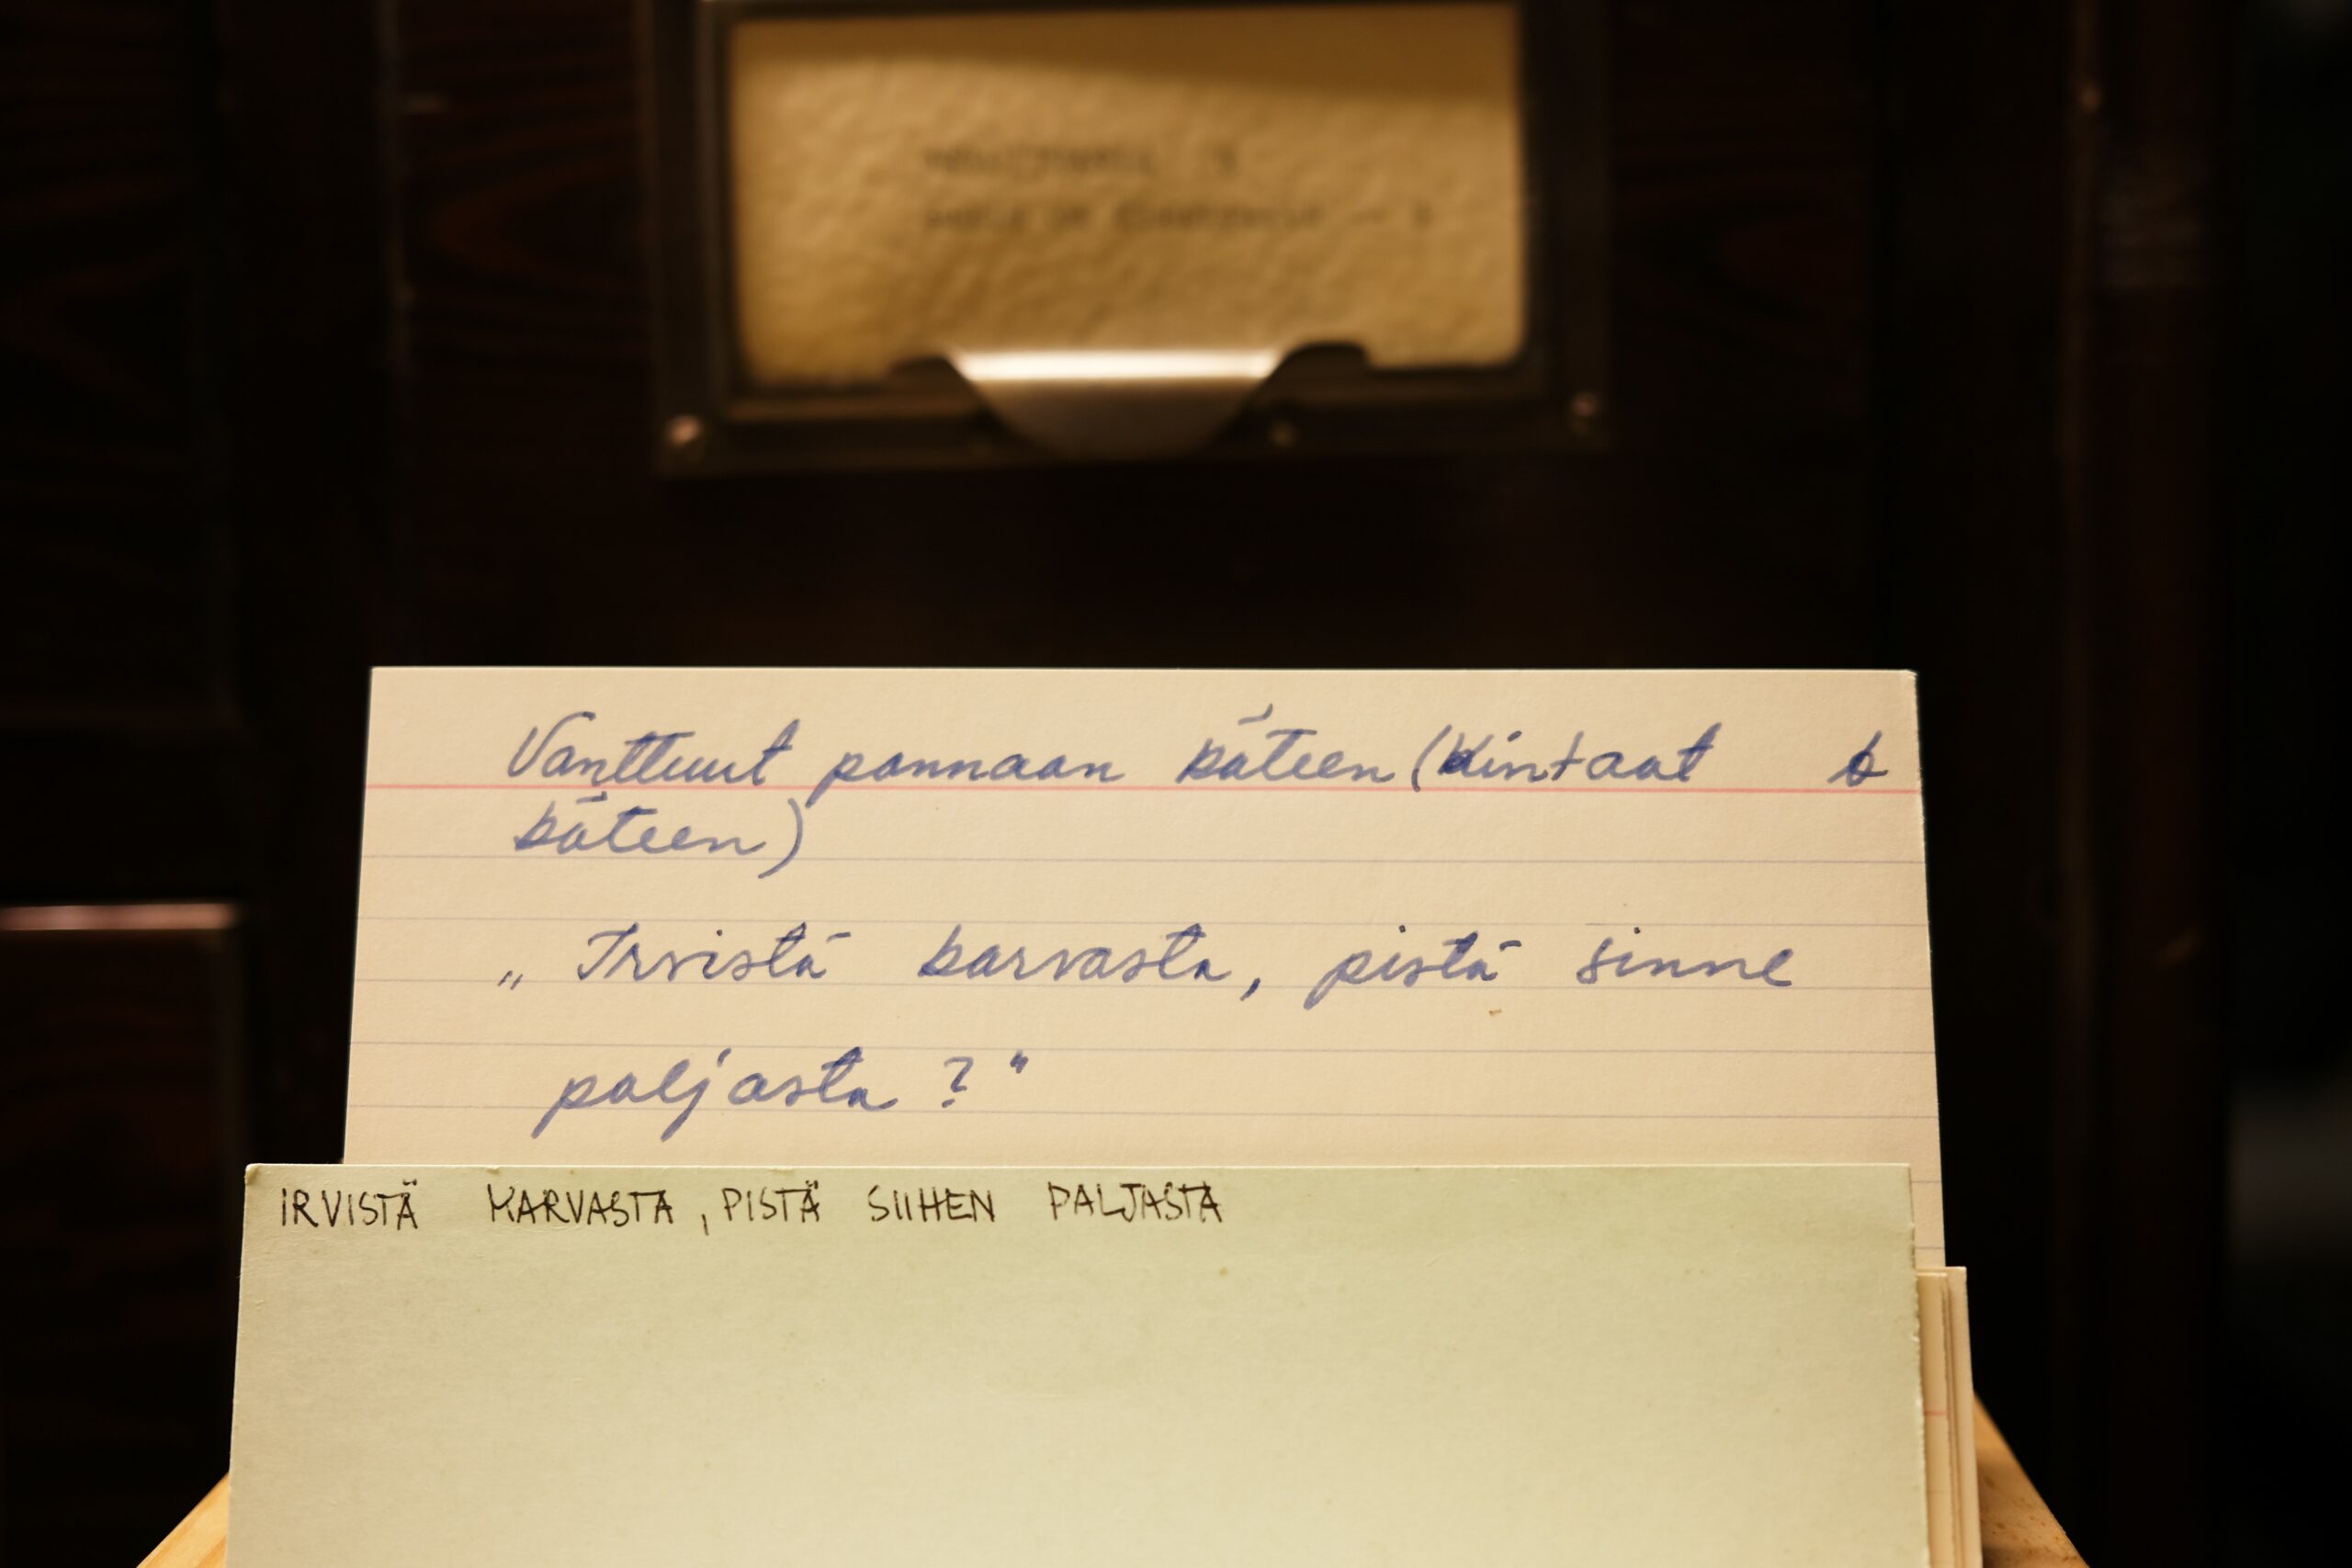 Vanttuut pannaan käteen (Kintaat k
käteen)
„ Irvistä karvasta, pistä sinne
paljasta ? "
IRVISTÄ KARVASTA, PISTÄ SIIHEN PALJASTA